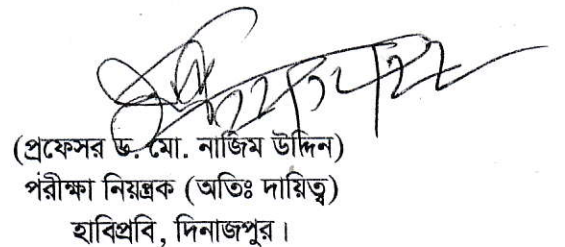 (প্রফেসর ড. মো. নাজিম উদ্দিন)
পরীক্ষা নিয়ন্ত্রক (অতিঃ দায়িত্ব)
হাবিপ্রবি, দিনাজপুর।